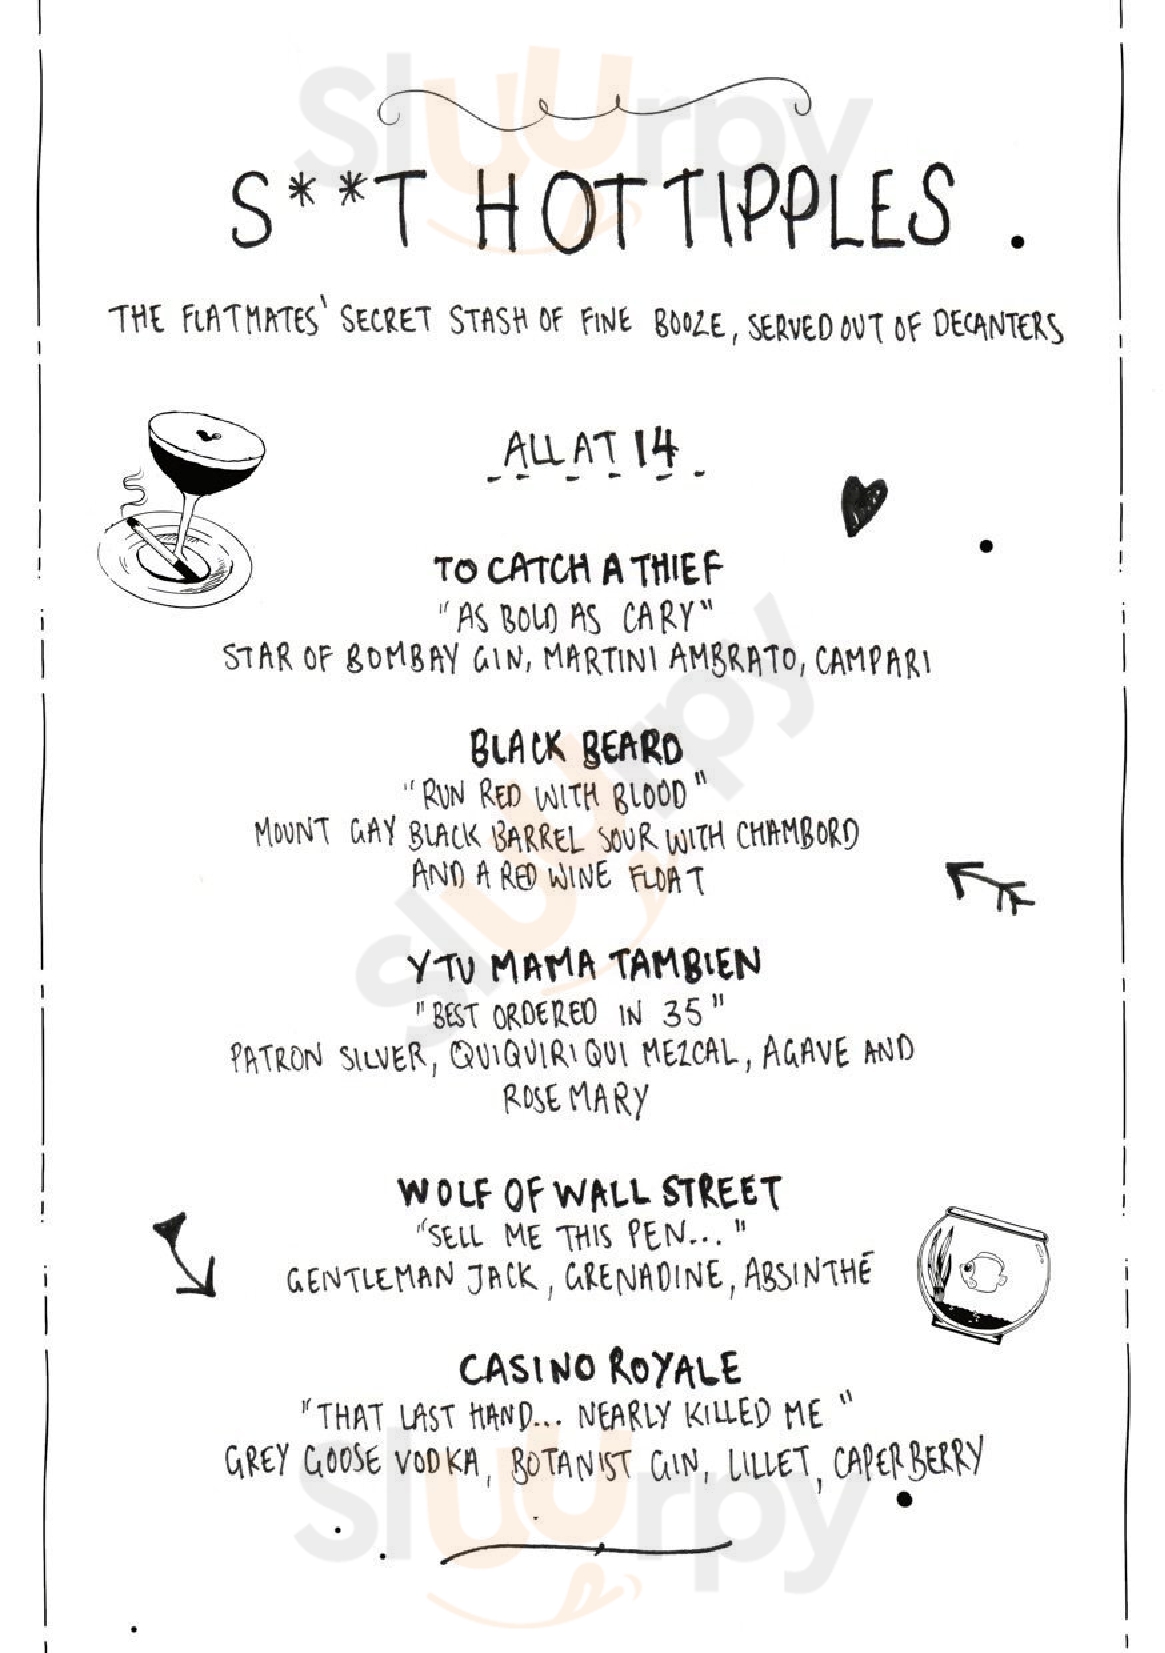 Sluurpy
S**T HOT TIPPLES .
THE FLATMATES' SECRET STASH OF FINE BOOZE, SERVED OUT OF DECANTERS
ALL AT 14
TO CATCH A THIEF
"AS BOLD AS CARY"
STAR OF BOMBAY GIN, MARTINI AMBRATO, CAMPARI
Sluurpy
BLACK BEARD
"RUN RED WITH BLOOD"
MOUNT GAY BLACK BARREL SOUR WITH CHAMBORD
AND A RED WINE FLOAT
Y TU MAMA TAMBIEN
"BEST ORDERED IN 35"
PATRON SILVER, QUIQUIRIQUI MEZCAL, AGAVE AND
ROSEMARY
WOLF OF WALL STREET
"SELL ME THIS PEN..."
GENTLEMAN JACK, GRENADINE, ABSINTHE
CASINO ROYALE
"THAT LAST HAND... NEARLY KILLED ME"
GREY GOOSE VODKA, BOTANIST GIN, LILLET, CAPERBERRY
Sluurpy